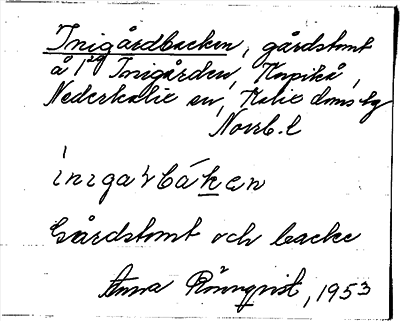 Inigårdbacken, gårdstomt
å 1²⁹ Inigården, Kopikå,
Nederkalix sn, Kalix doms-lg
Norrb. l
inigaɽbáken
Gårdstomt och backe
Anna Rönnqvist, 1953